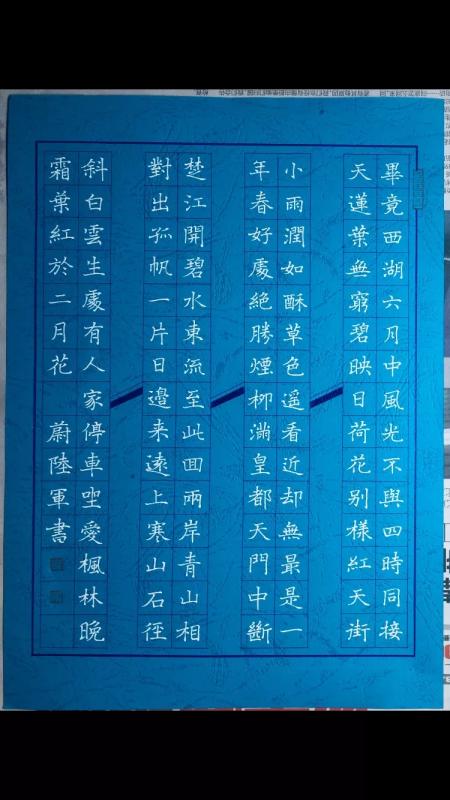 畢竟西湖六月中風光不與四時同接
天蓮葉無窮碧映日荷花别樣紅天街
小雨潤如酥草色遥看近却無最是一
年春好處絶勝煙柳滿皇都天門中斷
楚江開碧水東流至此回兩岸青山相
對出孤帆一片日邊来遠上寒山石徑
斜白雲生處有人家停車坐愛楓林晚
霜葉紅於二月花 蔚陸軍書